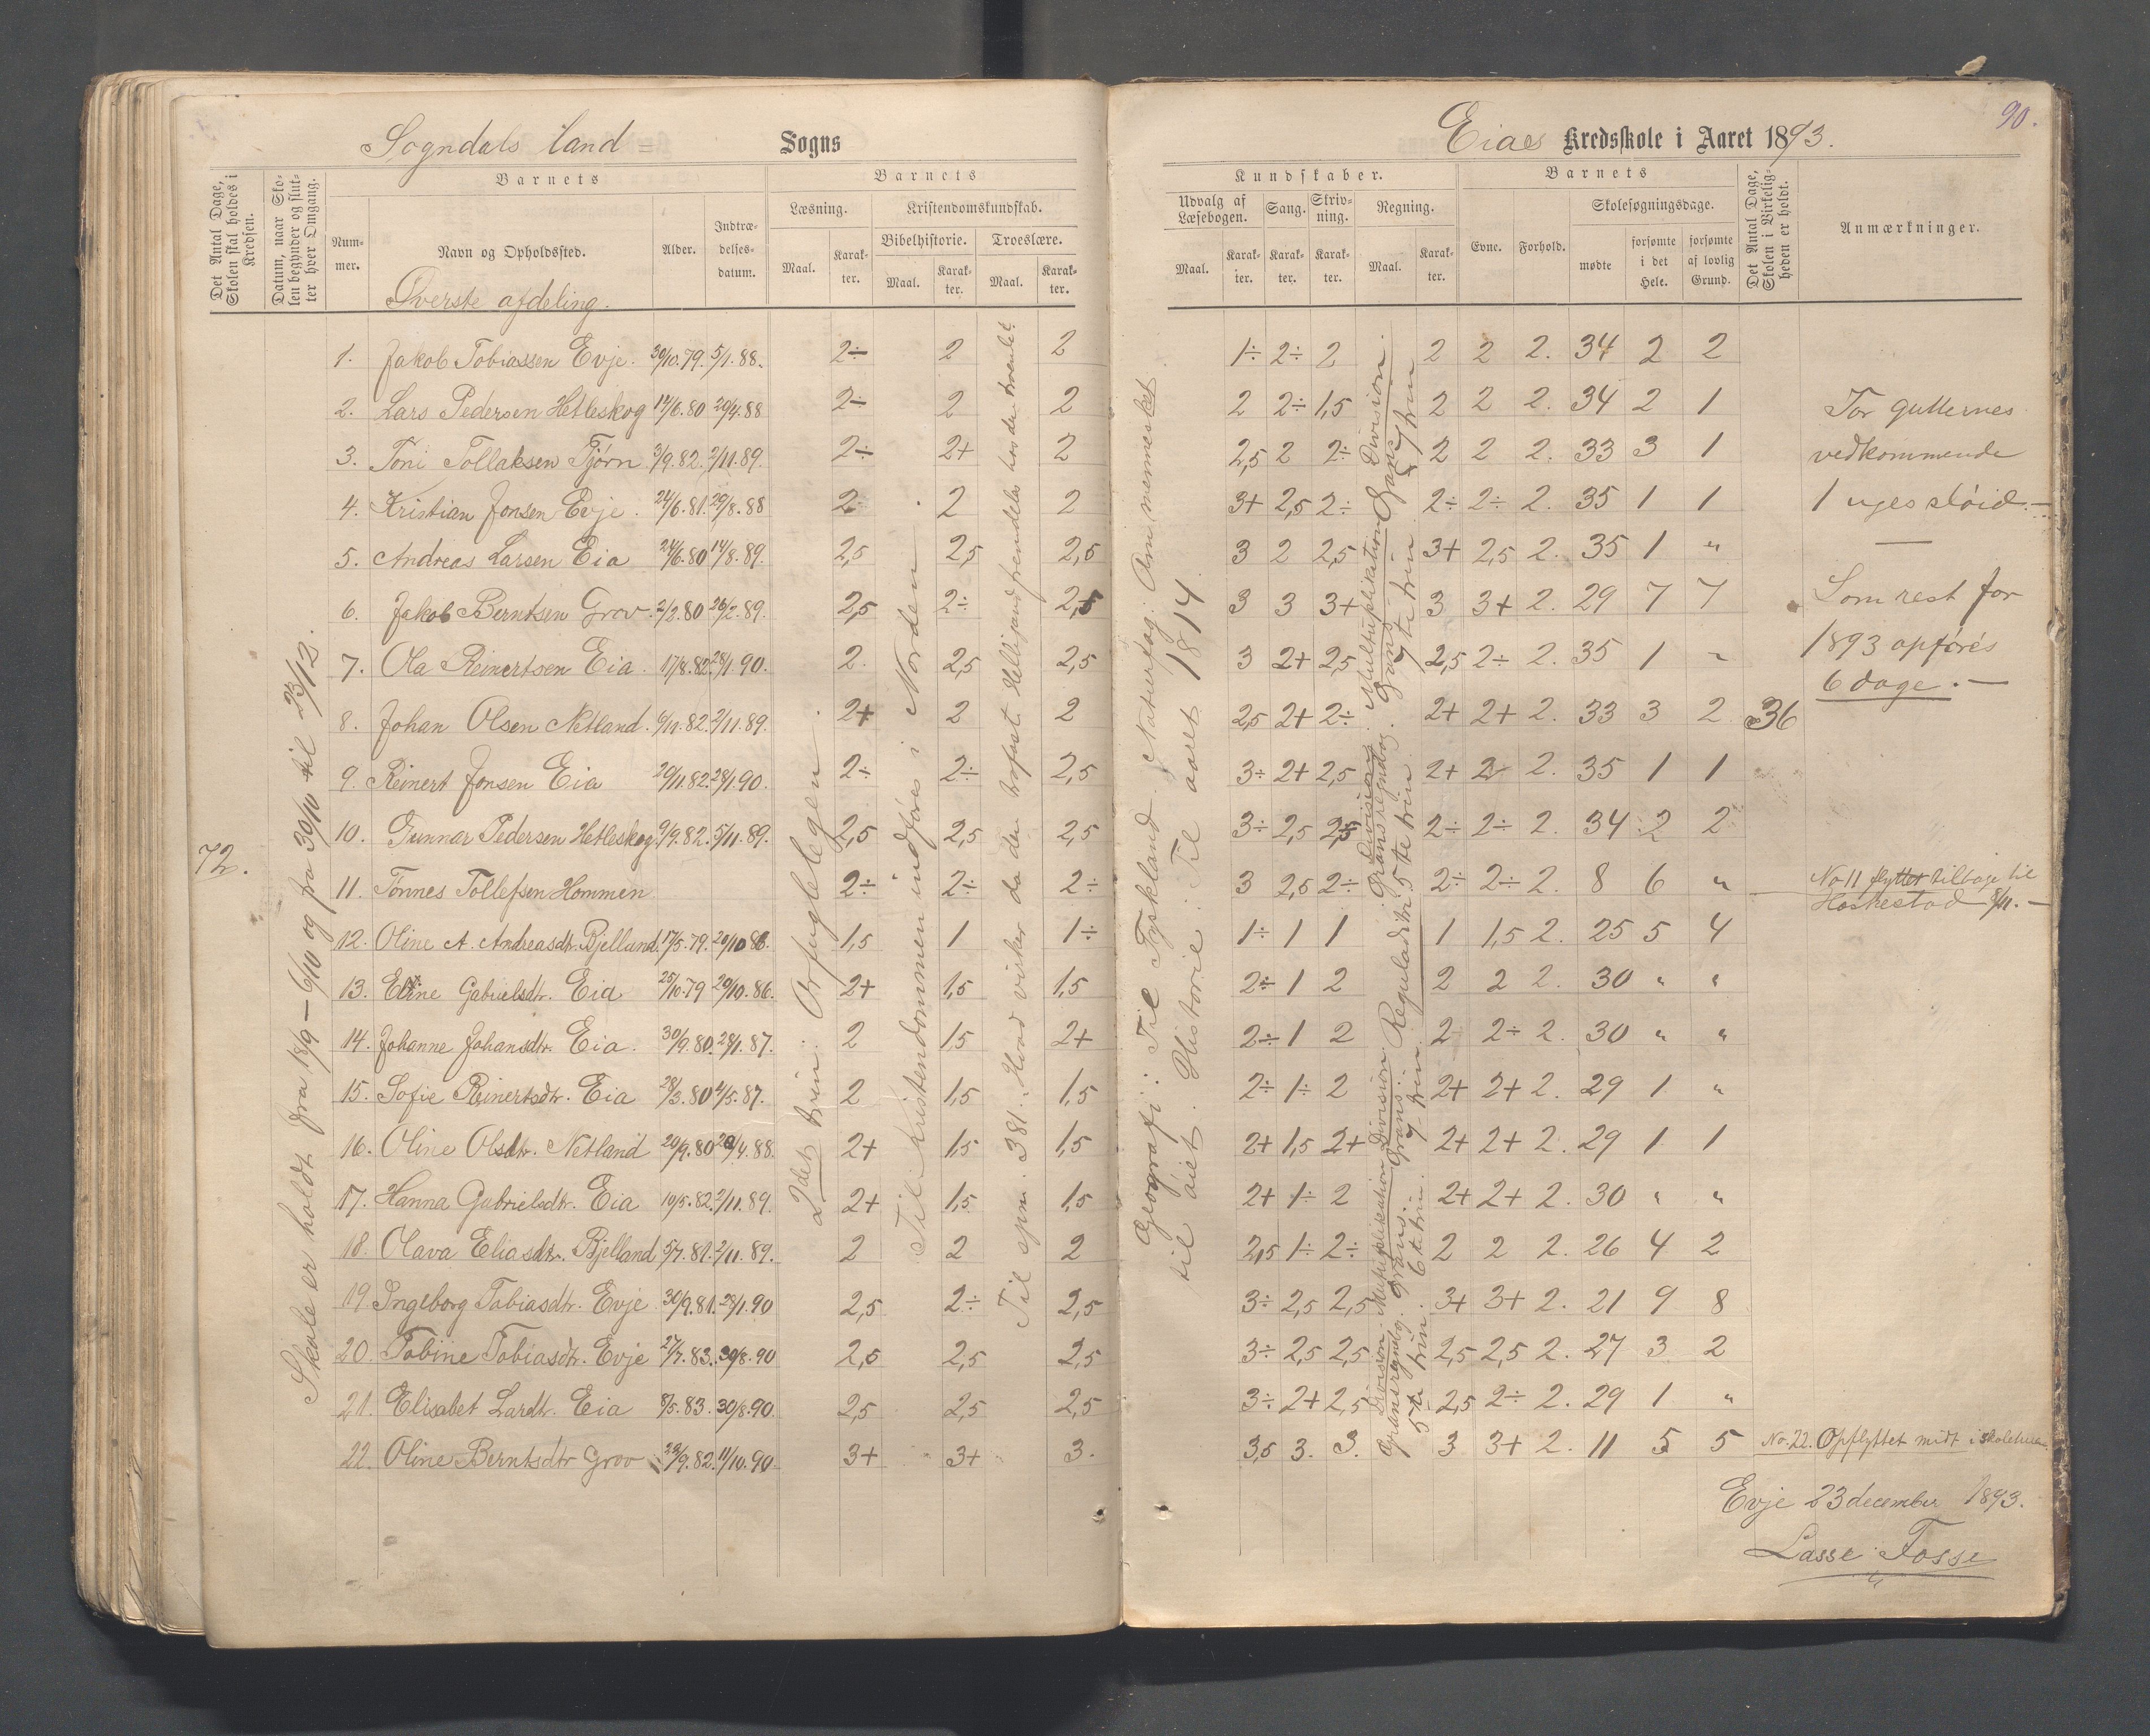 90.
Sogndals land = Sogns
Eiaes Kredsskole i Aaret 1893.
Det Antal Dage, Skolen skal holdes i Kredsen.
Datum, naar Skolen begynder og slutter hver Omgang.
Barnets
Nummer.
Navn og Opholdssted.
Alder.
Indtrædelsesdatum.
Barnets
Læsning.
Maal.
Karakter.
Kristendomskundskab.
Bibelhistorie.
Maal.
Karakter.
Troeslære.
Maal.
Karakter.
Kundskaber.
Udvalg af Læsebogen.
Maal.
Karakter.
Sang.
Karakter.
Skrivning.
Karakter.
Regning.
Maal.
Karakter.
Barnets
Evne.
Forhold.
Skolesøgningsdage.
mødte
forsømte i det Hele.
forsømte af lovlig Grund.
Det Antal Dage, Skolen i Virkeligheden er holdt.
Anmærkninger.
Øverste afdeling.
72.
Skole er holdt fra 18/9 – 6/10 og fra 30/10 til 23/12.
2det trin: Ørfuglelegen.
Til Kristendommen indføres i Norden
Til spm. 381:
Geografi: Til Tyskland. Naturfag: Om mennesket
til øiet. Historie: Til aaret 1814.
1. Jakob Tobiassen Evje. 30/10.79. 5/1.88. 2÷ 2 2 1÷ 2÷ 2 2 2 2. 34 2 2
2. Lars Pedersen Hetleskog 14/6.80 29/4.88 2÷ 2 2 2 2÷ 1,5 2 2 2. 34 2 1
3. Toni Tollaksen Fjørn 3/9.82. 2/11.89. 2÷ 2+ 2 2,5 2 2÷ 2 2 2. 33 3 1
4. Kristian Jonsen Evje. 24/6.81. 29/8.88 2÷ 2 2 3+ 2,5 2÷ 2÷ 2÷ 2. 35 1 1
5. Andreas Larsen Eia 24/6.80 14/8.89. 2,5 2,5 2,5 3 2 2,5 3+ 2,5 2. 35 1 "
6. Jakob Berntsen Grov. 2/2.80 26/2.89. 2,5 2÷ 2,5 3 3 3+ 3 3+ 2. 29 7 7
7. Ola Reinertsen Eia. 17/8.82. 28/1.90. 2. 2,5 2,5 3 2+ 2,5 2,5 2÷ 2. 35 1 "
8. Johan Olsen Netland. 6/11.82. 2/11.89. 2+ 2 2 2,5 2+ 2÷ 2+ 2+ 2. 33 3 2 36
9. Reinert Jonsen Eia 29/11.82. 28/1.90. 2÷ 2÷ 2,5 3÷ 2+ 2,5 2+ 2 2. 35 1 1
10. Gunnar Pedersen Hetleskog. 9/9.82. 5/11.89. 2,5 2,5 2,5 3÷ 2,5 2,5 2÷ 2÷ 2. 34 2 2
11. Tønnes Tollefsen Hommen 2÷ 2÷ 2÷ 3 2,5 2÷ 2÷ 2÷ 2. 8 6 "
12. Oline A. Andreasdtr. Bjelland 17/5.79. 20/10 86. 1,5 1 1÷ 1÷ 1 1 1 1,5 2. 25 5 4
13. Eline Gabrielsdtr. Eia 25/10.79 20/10.86. 2+ 1,5 1,5 2÷ 1 2 2 2 2. 30 " "
14. Johanne Johansdtr. Eia. 30/9.80. 28/1.87. 2 1,5 2+ 2÷ 1 2 2 2÷ 2. 30 " "
15. Sofie Reinertsdtr. Eia 28/3.80 4/5.87. 2 1,5 1,5 2÷ 1÷ 2 2+ 2+ 2. 29 1 "
16. Oline Olsdtr. Netland 20/9.80 29/4.88. 2+ 1,5 1,5 2+ 1,5 2+ 2+ 2+ 2. 29 1 1
17. Hanna Gabrielsdtr. Eia 10/5.82. 2/11.89. 2+ 1,5 1,5 2+ 1÷ 2 2+ 2+ 2. 30 " "
18. Olava Eliasdtr. Bjelland 5/7.81. 2/11.89. 2 2 2 2,5 1÷ 2÷ 2 2 2. 26 4 2
19. Ingeborg Tobiasdtr. Evje 30/9.81. 28/1.90 2,5 2÷ 2,5 3÷ 2,5 2,5 3+ 3+ 2. 21 9 8
20. Tobine Tobiasdtr. Evje 27/7.83. 30/8.90 2,5 2,5 2,5 3÷ 2,5 2,5 2,5 2,5 2. 27 3 2
21. Elisabet Larsdtr. Eia 8/5.83. 30/8.90. 2,5 2,5 2,5 3÷ 2+ 2,5 2,5 2÷ 2. 29 1 "
22. Oline Berntsdtr Grov 22/9.82. 11/10.90. 3+ 3+ 3. 3,5 3. 3. 3 3+ 2. 11 5 5
For gutternes
vedkommende
1 uges sløid. —
Som rest for
1893 opføres
6 dage. —
No 11 flyttet tilbage til
Heskestad 8/11. —
No. 22. Opflyttet midt i
Evje 23 december 1893.
Lasse Fosse